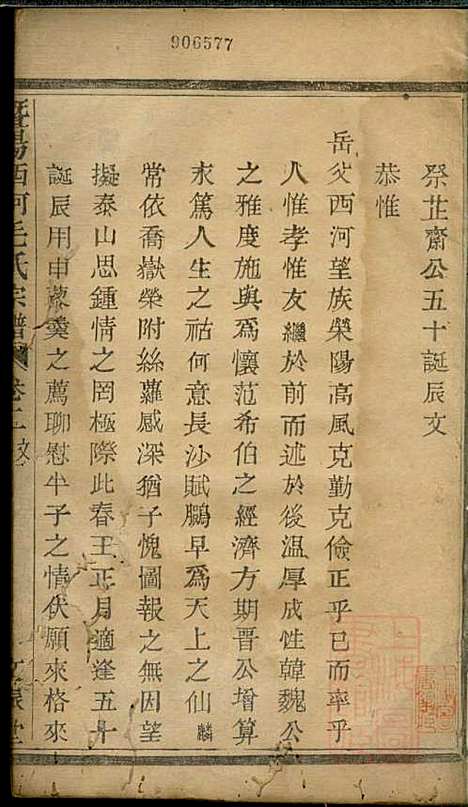 906577
祭芷齋公五十誕辰文
恭惟
岳父西河望族榮陽高風克勤克儉正乎已而率乎
人惟孝惟友繼於前而述於後溫厚成性韓魏公
之雅度施與爲懷范希伯之經濟方期晋公增算
永篤人生之祜何意長沙賦鵬早爲天上之仙麟
常依喬嶽榮附絲蘿感深猶子愧圖報之無因望
擬泰山思鍾情之罔極際此春王正月適逢五十
誕辰用申藜羹之薦聊慰半子之情伏願來格來
暨陽西河毛氏宗譜 卷二 文